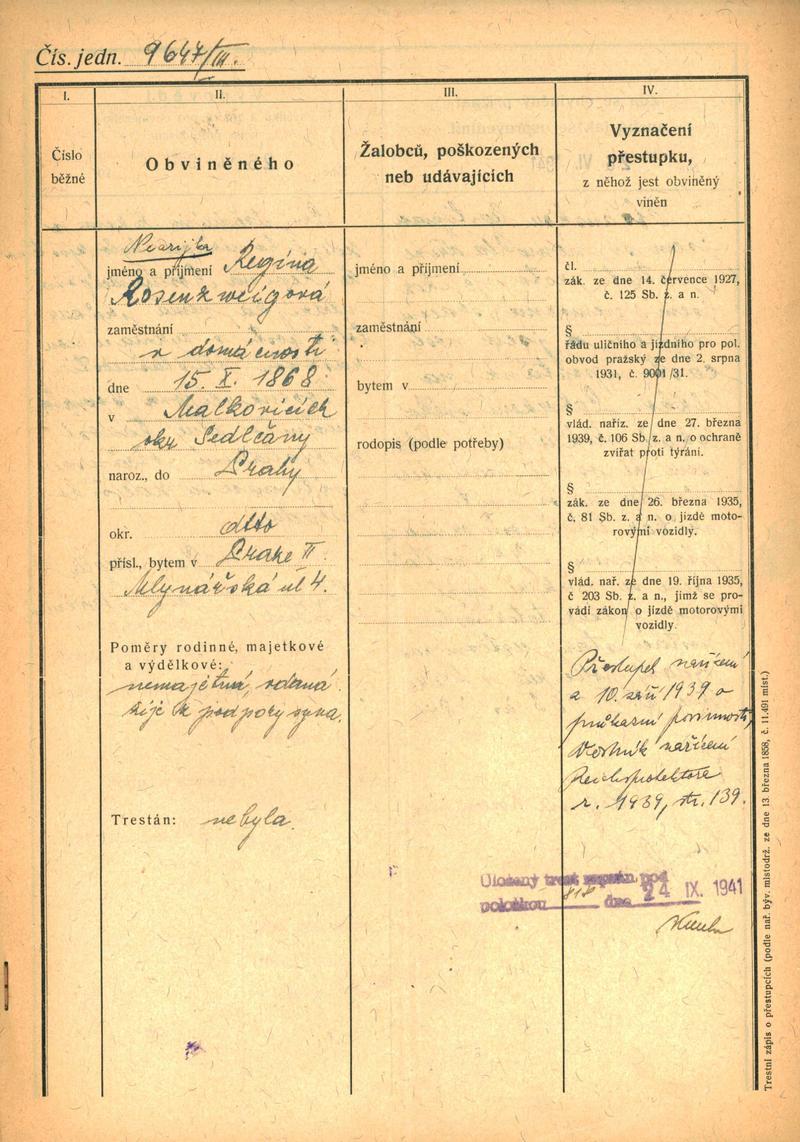 Čís. jedn. 9647/III.
I.
Číslo
běžné
II.
Obviněného
III.
Žalobců, poškozených
neb udávajících
IV.
Vyznačení
přestupku,
z něhož jest obviněný
viněn
Nearijka
jméno a příjmení Regina
Rosenzweigová
zaměstnání
v domácnosti
dne 15. X. 1868
v Malkovicích
okr Sedlčany
naroz., do Prahy
okr. dtto
přísl., bytem v Praze II
Mlynářská ul 4.
Poměry rodinné, majetkové
a výdělkové:
nemajetná, vdaná
žije z podpory syna.
Trestán: nebyla.
jméno a příjmení
zaměstnání
bytem v
rodopis (podle potřeby)
čl.
zák. ze dne 14. července 1927,
č. 125 Sb. z. a n.
§
řádu uličního a jízdního pro pol.
obvod pražský ze dne 2. srpna
1931, č. 9001/31.
§
vlád. naříz. ze dne 27. března
1939, č. 106 Sb. z. a n. o ochraně
zvířat proti týrání.
§
zák. ze dne 26. března 1935,
č. 81 Sb. z. a n. o jízdě moto-
rovými vozidly.
§
vlád. nař. ze dne 19. října 1935,
č 203 Sb. z. a n., jímž se pro-
vádí zákon o jízdě motorovými
vozidly.
Přestupek nařízení
z 10. září 1939 o
průkazní povinnosti,
Věstník nařízení
Reichsprotektora
r. 1939, str. 139.
Uložený trest zapsán pod
položkou 818 dne 24 IX. 1941
Trestní zápis o přestupcích (podle nař. býv. místodrž. ze dne 13. března 1858, č. 11.491 míst.)